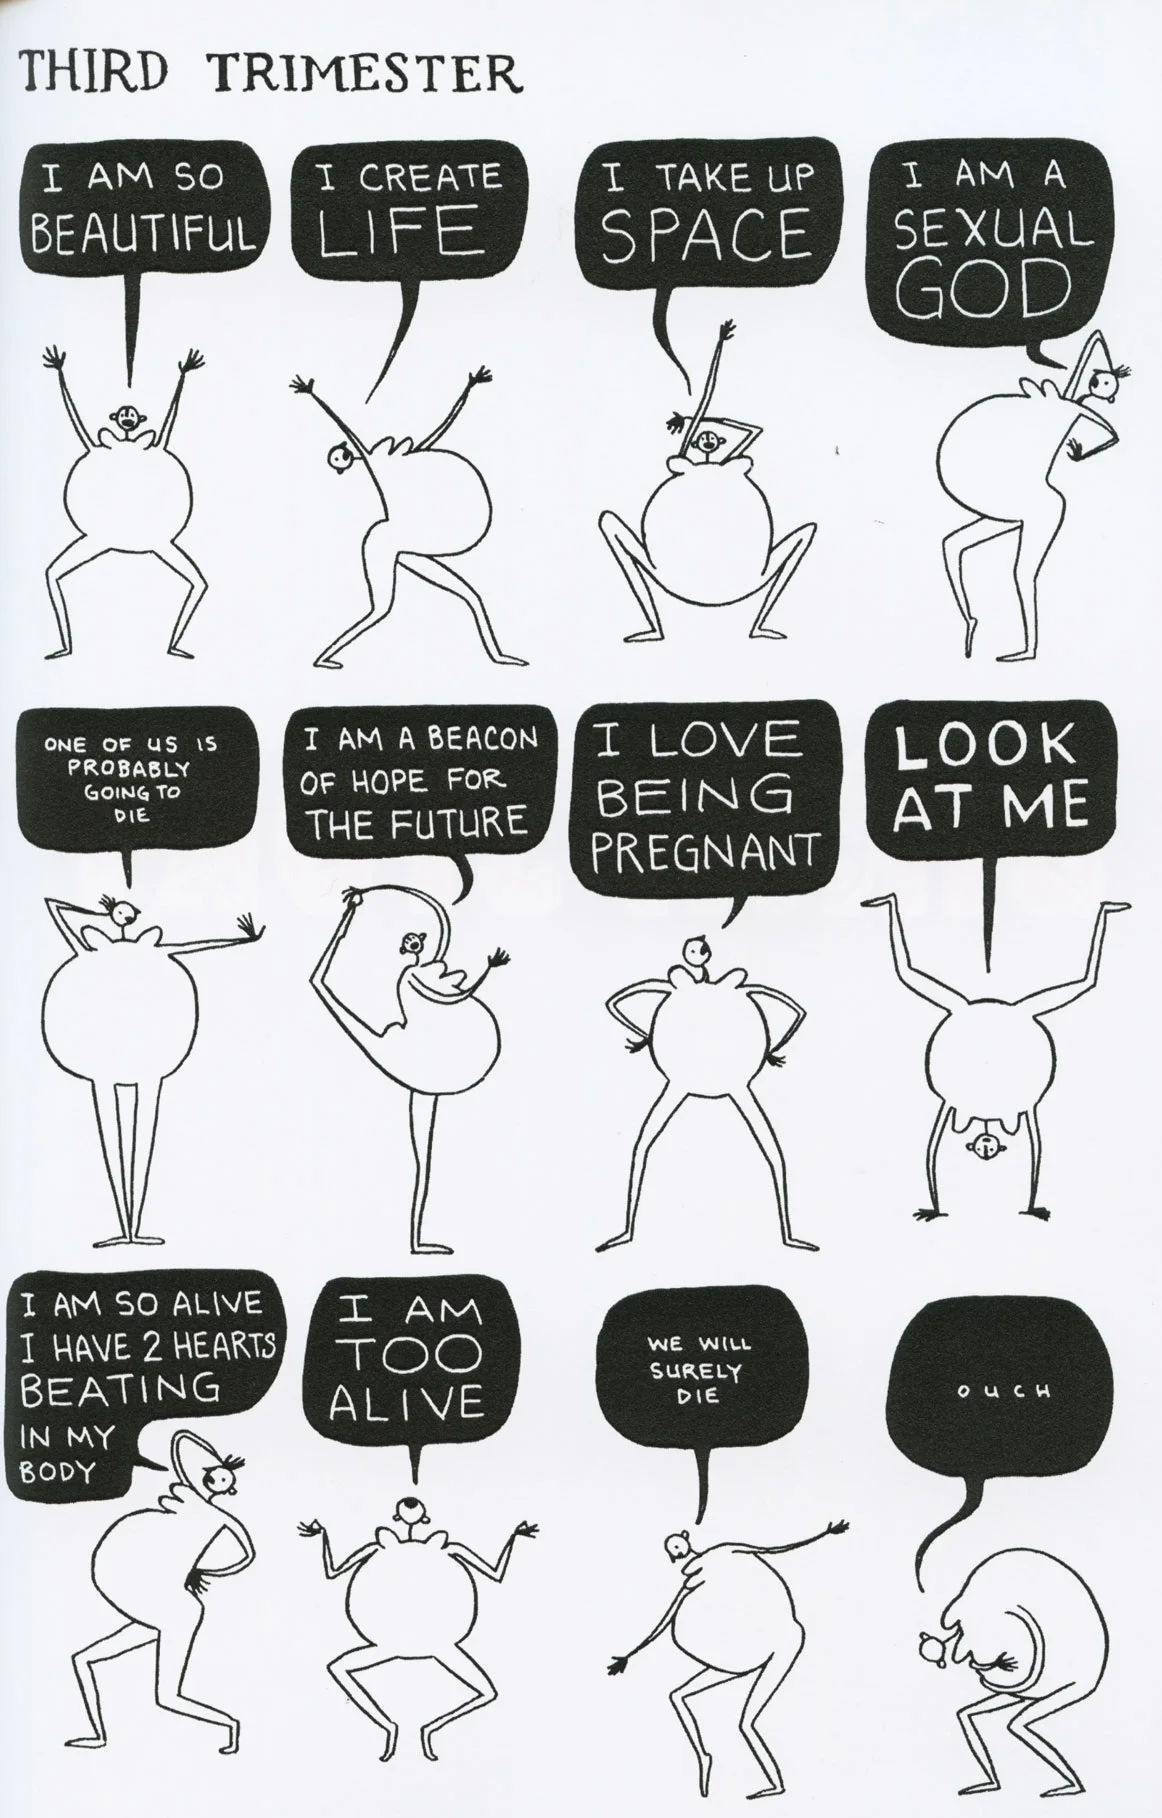 THIRD TRIMESTER
I AM SO
BEAUTIFUL
I CREATE
LIFE
I TAKE UP
SPACE
I AM A
SEXUAL
GOD
ONE OF US IS
PROBABLY
GOING TO
DIE
I AM A BEACON
OF HOPE FOR
THE FUTURE
I LOVE
BEING
PREGNANT
LOOK
AT ME
I AM SO ALIVE
I HAVE 2 HEARTS
BEATING
IN MY
BODY
I AM
TOO
ALIVE
WE WILL
SURELY
DIE
OUCH